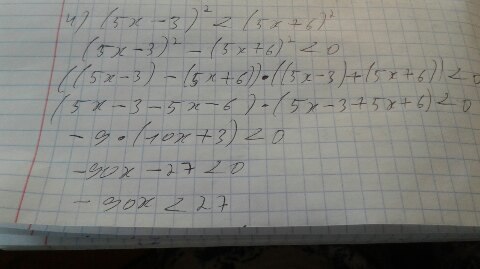 4) (5x-3)² < (5x+6)²
(5x-3)² - (5x+6)² < 0
((5x-3) - (5x+6))•((5x-3)+(5x+6)) < 0
(5x-3-5x-6)•(5x-3+5x+6) < 0
-9•(10x+3) < 0
-90x-27 < 0
-90x < 27